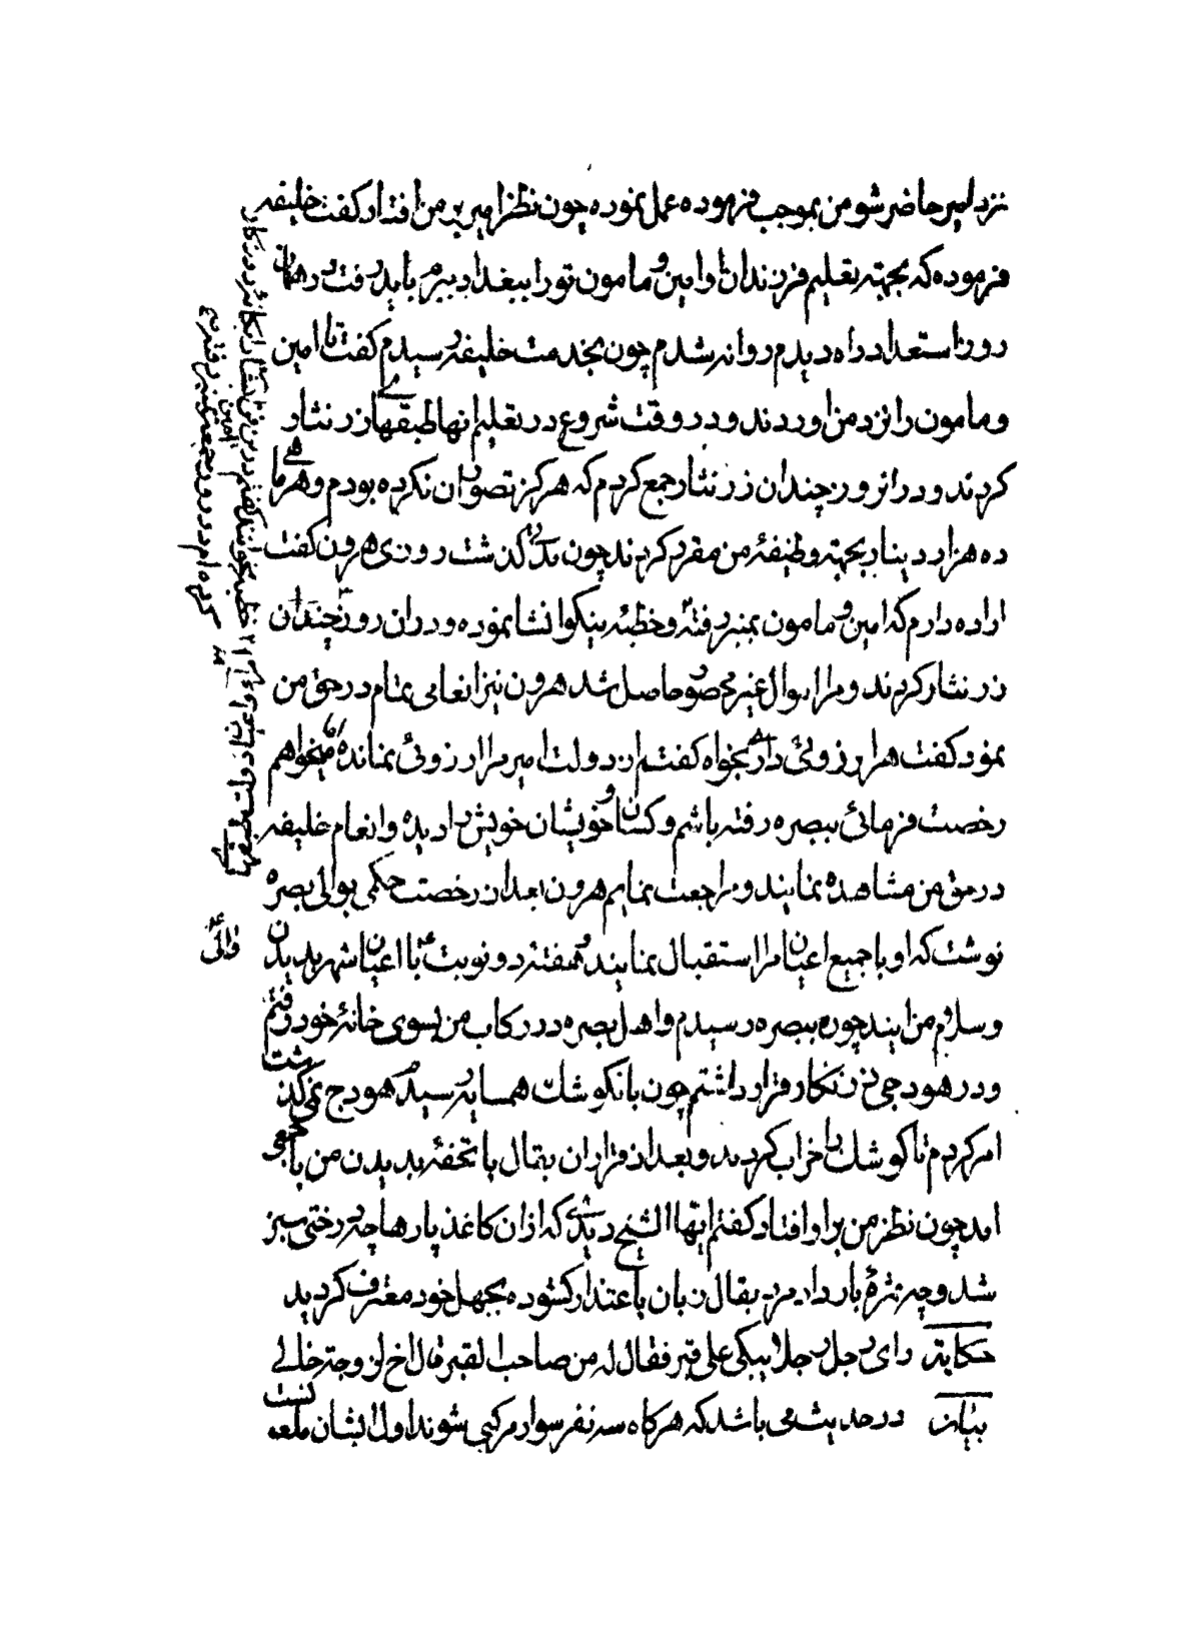 نزد امیر حاضر شو من بموجب فرموده عمل نموده چون نظر امیر بر من افتاد کفت خلیفه
فرموده که بجهته تعلیم فرزندان او امین و مامون تو را ببغداد ببرم باید رفت در همان
روز استعداد راه دیدم روانه شدم چون بخدمت خلیفه رسیدم کفت تا امین
و مامون را نزد من اوردند و در وقت شروع در تعلیم انها طبقهای زر نثار
کردند و در انروز چندان زر نثار جمع کردم که هرکز تصور ان نکرده بودم و هر ماهی
ده هزار دینار بجهته وظیفهٔ من مقرر کردند چون مدتی کذشت روزی هرون کفت
اراده دارم که امین و مامون بمنبر رفته و خطبهٔ نیکو انشا نموده و دران روز چندان
زر نثار کردند و مرا اموال غیر محصور حاصل شد هرون نیز انعامی تمام در حق من
نمود کفت هر ارزوئی داری بخواه کفتم از دولت امیر مرا ارزوئی نمانده اما میخواهم
رخصت فرمائی ببصره رفته باشم و کسان و خویشان خویش را دیده و انعام خلیفه
در حق من مشاهده نمایند و مراجعت نمایم هرون بعد از رخصت حکمی بوالی بصره
نوشت که او با جمیع اعیان مرا استقبال نمایند و هفته دو نوبت با اعیان شهر بدیدن
و سلام من ایند چون ببصره رسیدم و اهل بصره در رکاب من بسوی خانهٔ خود رفتم
و در هودجی زرنکار قرار داشتم چون بانکوشك همسایه رسید هودج نمی کذشت
امر کردم تا کوشك را خراب کردند و بعد از قرار ان بقال با تحفهٔ بدیدن من با جمعی
امد چون نظر من بر او افتاد کفتم ایها الشیخ دیدی که ازان کاغذ پارها چه درختی سبز
شد و چه ثمرهٔ بار داد مرد بقال زبان باعتذار کشوده بجهل خود معترف کردید
حکایة رای رجل رجلا یبکی علی قبر فقال له من صاحب القبر قال اخ لزوجة خالی
بیان در حدیث می باشد که هرکاه سه نفر سوار مرکبی شوند اول ایشان ملعونست